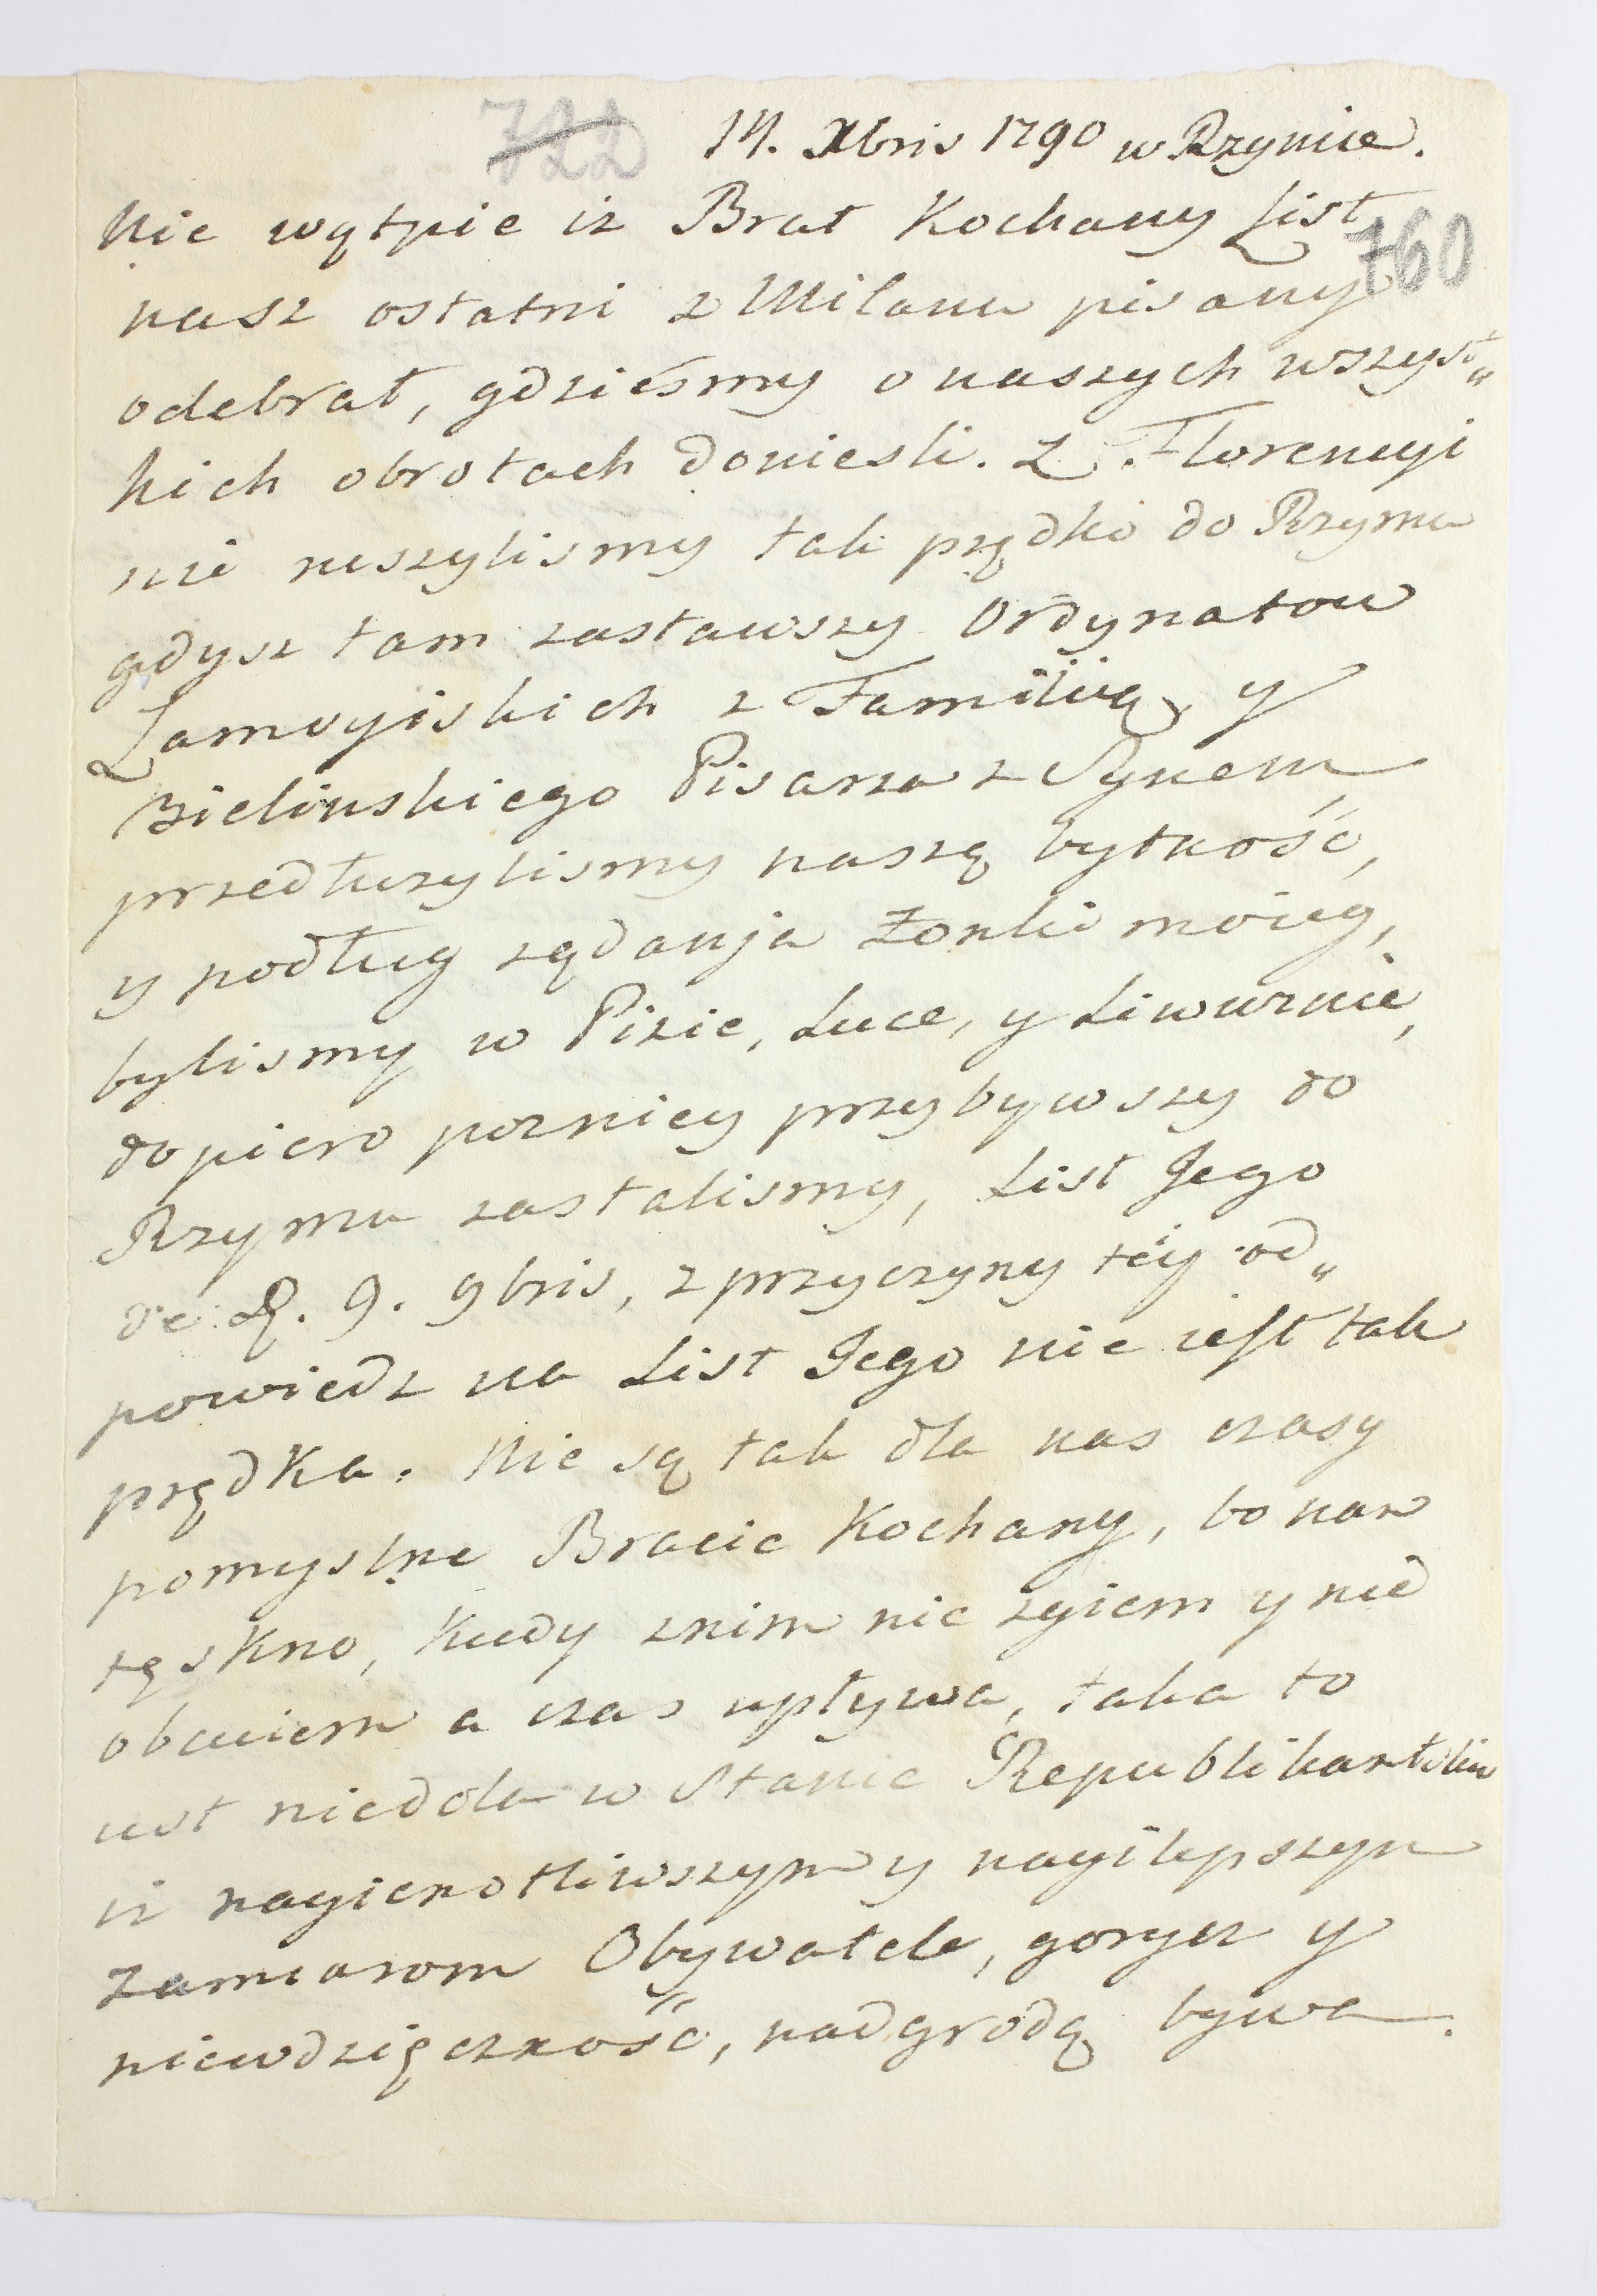 722 14. Xbris 1790 w Rzymie.
760
Nie wątpie iz Brat Kochany List
nasz ostatni z Milanu pisany
odebrał, gdzieśmy o naszych wszyst„
kich obrotach doniesli. Z Florencyi
nie ruszylismy tak prędko do Rzymu
gdysz tam zastawszy Ordynatow
Zamoyiskich z Familiią, y
Bielinskiego Pisarza z Synem
przedłuzylismy naszą bytność,
y podług ządanja Zonki moiey,
bylismy w Pizie, Luce, y Liwurnie,
dopiero pozniey przybywszy do
Rzymu zastalismy, List Jego
de D. 9. 9bris, z przyczyny téy od„
powiedz na List Jego nie iest tak
prędka. Nie są tak dla nas czasy
pomyslne Bracie Kochany, bo nam
tęskno, kiedy znim nie zyiem y nie
obcuiem a czas upływa, taka to
iest niedola w Stanie Republikantskim
iz nayicnotliwszym y nayilepszym
Zamiarom Obywatela, gorycz y
niewdzięczność, nadgrodą bywa.